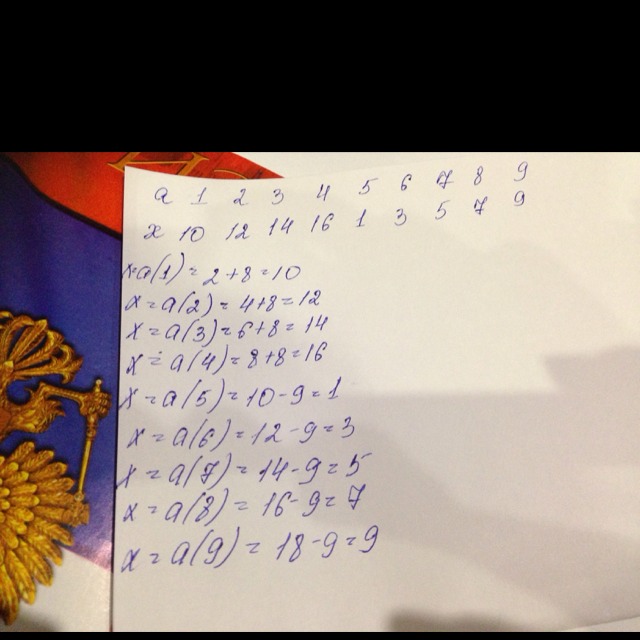 a 1 2 3 4 5 6 7 8 9
x 10 12 14 16 1 3 5 7 9
x=a(1)=2+8=10
x=a(2)=4+8=12
x=a(3)=6+8=14
x=a(4)=8+8=16
x=a(5)=10-9=1
x=a(6)=12-9=3
x=a(7)=14-9=5
x=a(8)=16-9=7
x=a(9)=18-9=9